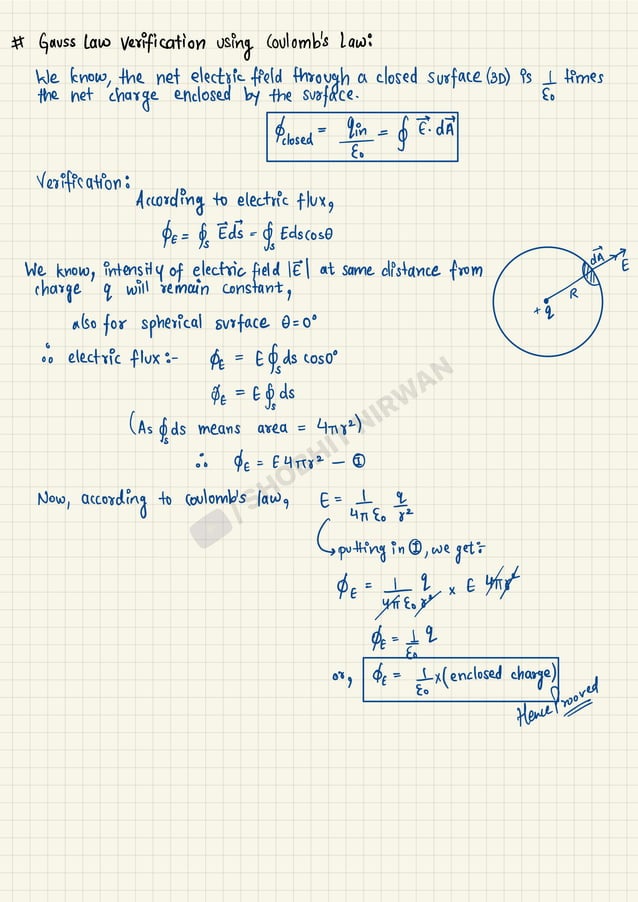 # Gauss Law Verification using Coulomb's Law:
We know, the net electric field through a closed surface (3D) is 1/ε₀ times
the net charge enclosed by the surface.
ϕclosed = qin/ε₀ = ∮ E⃗. dA⃗
Verification:
According to electric flux,
ϕE = ∮s E⃗ds⃗ = ∮s Edscosθ
We know, intensity of electric field |E⃗| at same distance from
charge q will remain constant,
dA⃗
E
R
+q
also for spherical surface θ=0°
∴ electric flux:- ϕE = E∮s ds cos0°
ϕE = E∮s ds
(As ∮s ds means area = 4πr²)
∴ ϕE = E4πr² — ①
Now, according to Coulomb's law, E = 1/4πε₀ q/r²
putting in ①, we get:-
ϕE = 1/4πε₀ q/r² × E 4πr²
ϕE = 1/ε₀ q
or, ϕE = 1/ε₀ ×(enclosed charge)
Hence Prooved
/SHOBHIT NIRWAN